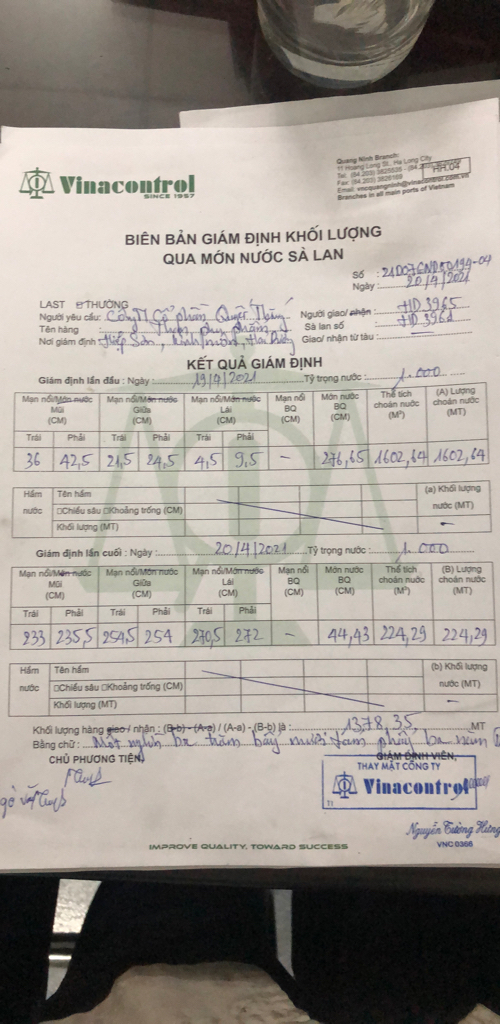 Vinacontrol
SINCE 1957
Quang Ninh Branch:
11 Hoang Long St., Ha Long City
Branches in all main ports of Vietnam
HH.04
BIÊN BẢN GIÁM ĐỊNH KHỐI LƯỢNG
QUA MÓN NƯỚC SÀ LAN
Số : 21D07GND00194-04
Ngày : 20/4/2021
LAST THƯỜNG
Người yêu cầu: Công ty Cổ phần Quyết Thắng
Người giao/ nhận : HD 3965
Tên hàng : Than phụ phẩm
Sà lan số : HD 3961
Nơi giám định : Hiệp Sơn, Kinh Môn, Hải Dương
Giao/ nhận từ tàu :
KẾT QUẢ GIÁM ĐỊNH
Giám định lần đầu : Ngày : 19/4/2021 Tỷ trọng nước : 1.000
Mạn nổi/Món nước Mũi (CM) Mạn nổi/Món nước Giữa (CM) Mạn nổi/Món nước Lái (CM) Mạn nổi BQ (CM) Món nước BQ (CM) Thể tích choán nước (M³) (A) Lượng choán nước (MT)
Trái Phải Trái Phải Trái Phải
36 42,5 21,5 24,5 4,5 9,5 – 276,65 1602,64 1602,64
Hầm nước Tên hầm (a) Khối lượng nước (MT)
□Chiều sâu □Khoảng trống (CM)
Khối lượng (MT) –
Giám định lần cuối : Ngày : 20/4/2021 Tỷ trọng nước : 1.000
Mạn nổi/Món nước Mũi (CM) Mạn nổi/Món nước Giữa (CM) Mạn nổi/Món nước Lái (CM) Mạn nổi BQ (CM) Món nước BQ (CM) Thể tích choán nước (M³) (B) Lượng choán nước (MT)
Trái Phải Trái Phải Trái Phải
233 235,5 254,5 254 270,5 272 – 44,43 224,29 224,29
Hầm nước Tên hầm (b) Khối lượng nước (MT)
□Chiều sâu □Khoảng trống (CM)
Khối lượng (MT) –
Khối lượng hàng giao / nhận : (B-b) - (A-a) / (A-a) - (B-b) là : 1378,35 MT
Bằng chữ : Một nghìn ba trăm bảy mươi tám phẩy ba năm
CHỦ PHƯƠNG TIỆN
GIÁM ĐỊNH VIÊN,
THAY MẶT CÔNG TY
Vinacontrol
T1
Nguyễn Tường Hưng
VNC 0366
IMPROVE QUALITY, TOWARD SUCCESS